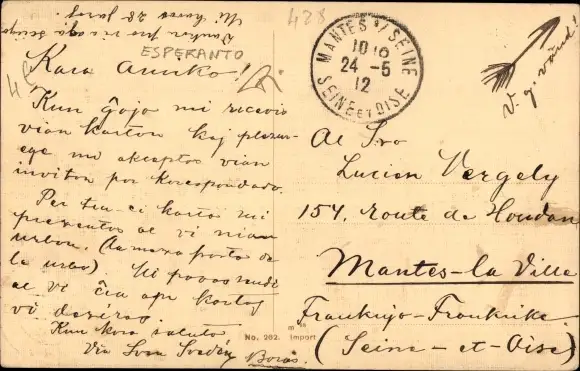 Mi havas 28 jarojn
Danker pro via aĝo sciigo
428
ESPERANTO
Kara Amiko!
Kun ĝojo mi recevis
vian karton kaj plezur-
ege mi akceptos vian
inviton por korespondado.
Per tiu-ci karto mi
prezentos al vi mian
urbon. (La nova pordo de
la urbo). Mi povos sendi
al vi ĉia ajn kartoj
vi deziras.
Kun kora saluto
Via Sven Svedén
Borås.
No. 262. Import
MANTES S/SEINE
10 18
24 - 5
12
SEINE ET OISE
V. g. vänd!
Al Sro
Lucien Vergely
154, route de Houdan
Mantes-la Ville
Frankujo-Frankrike.
(Seine-et-Oise)